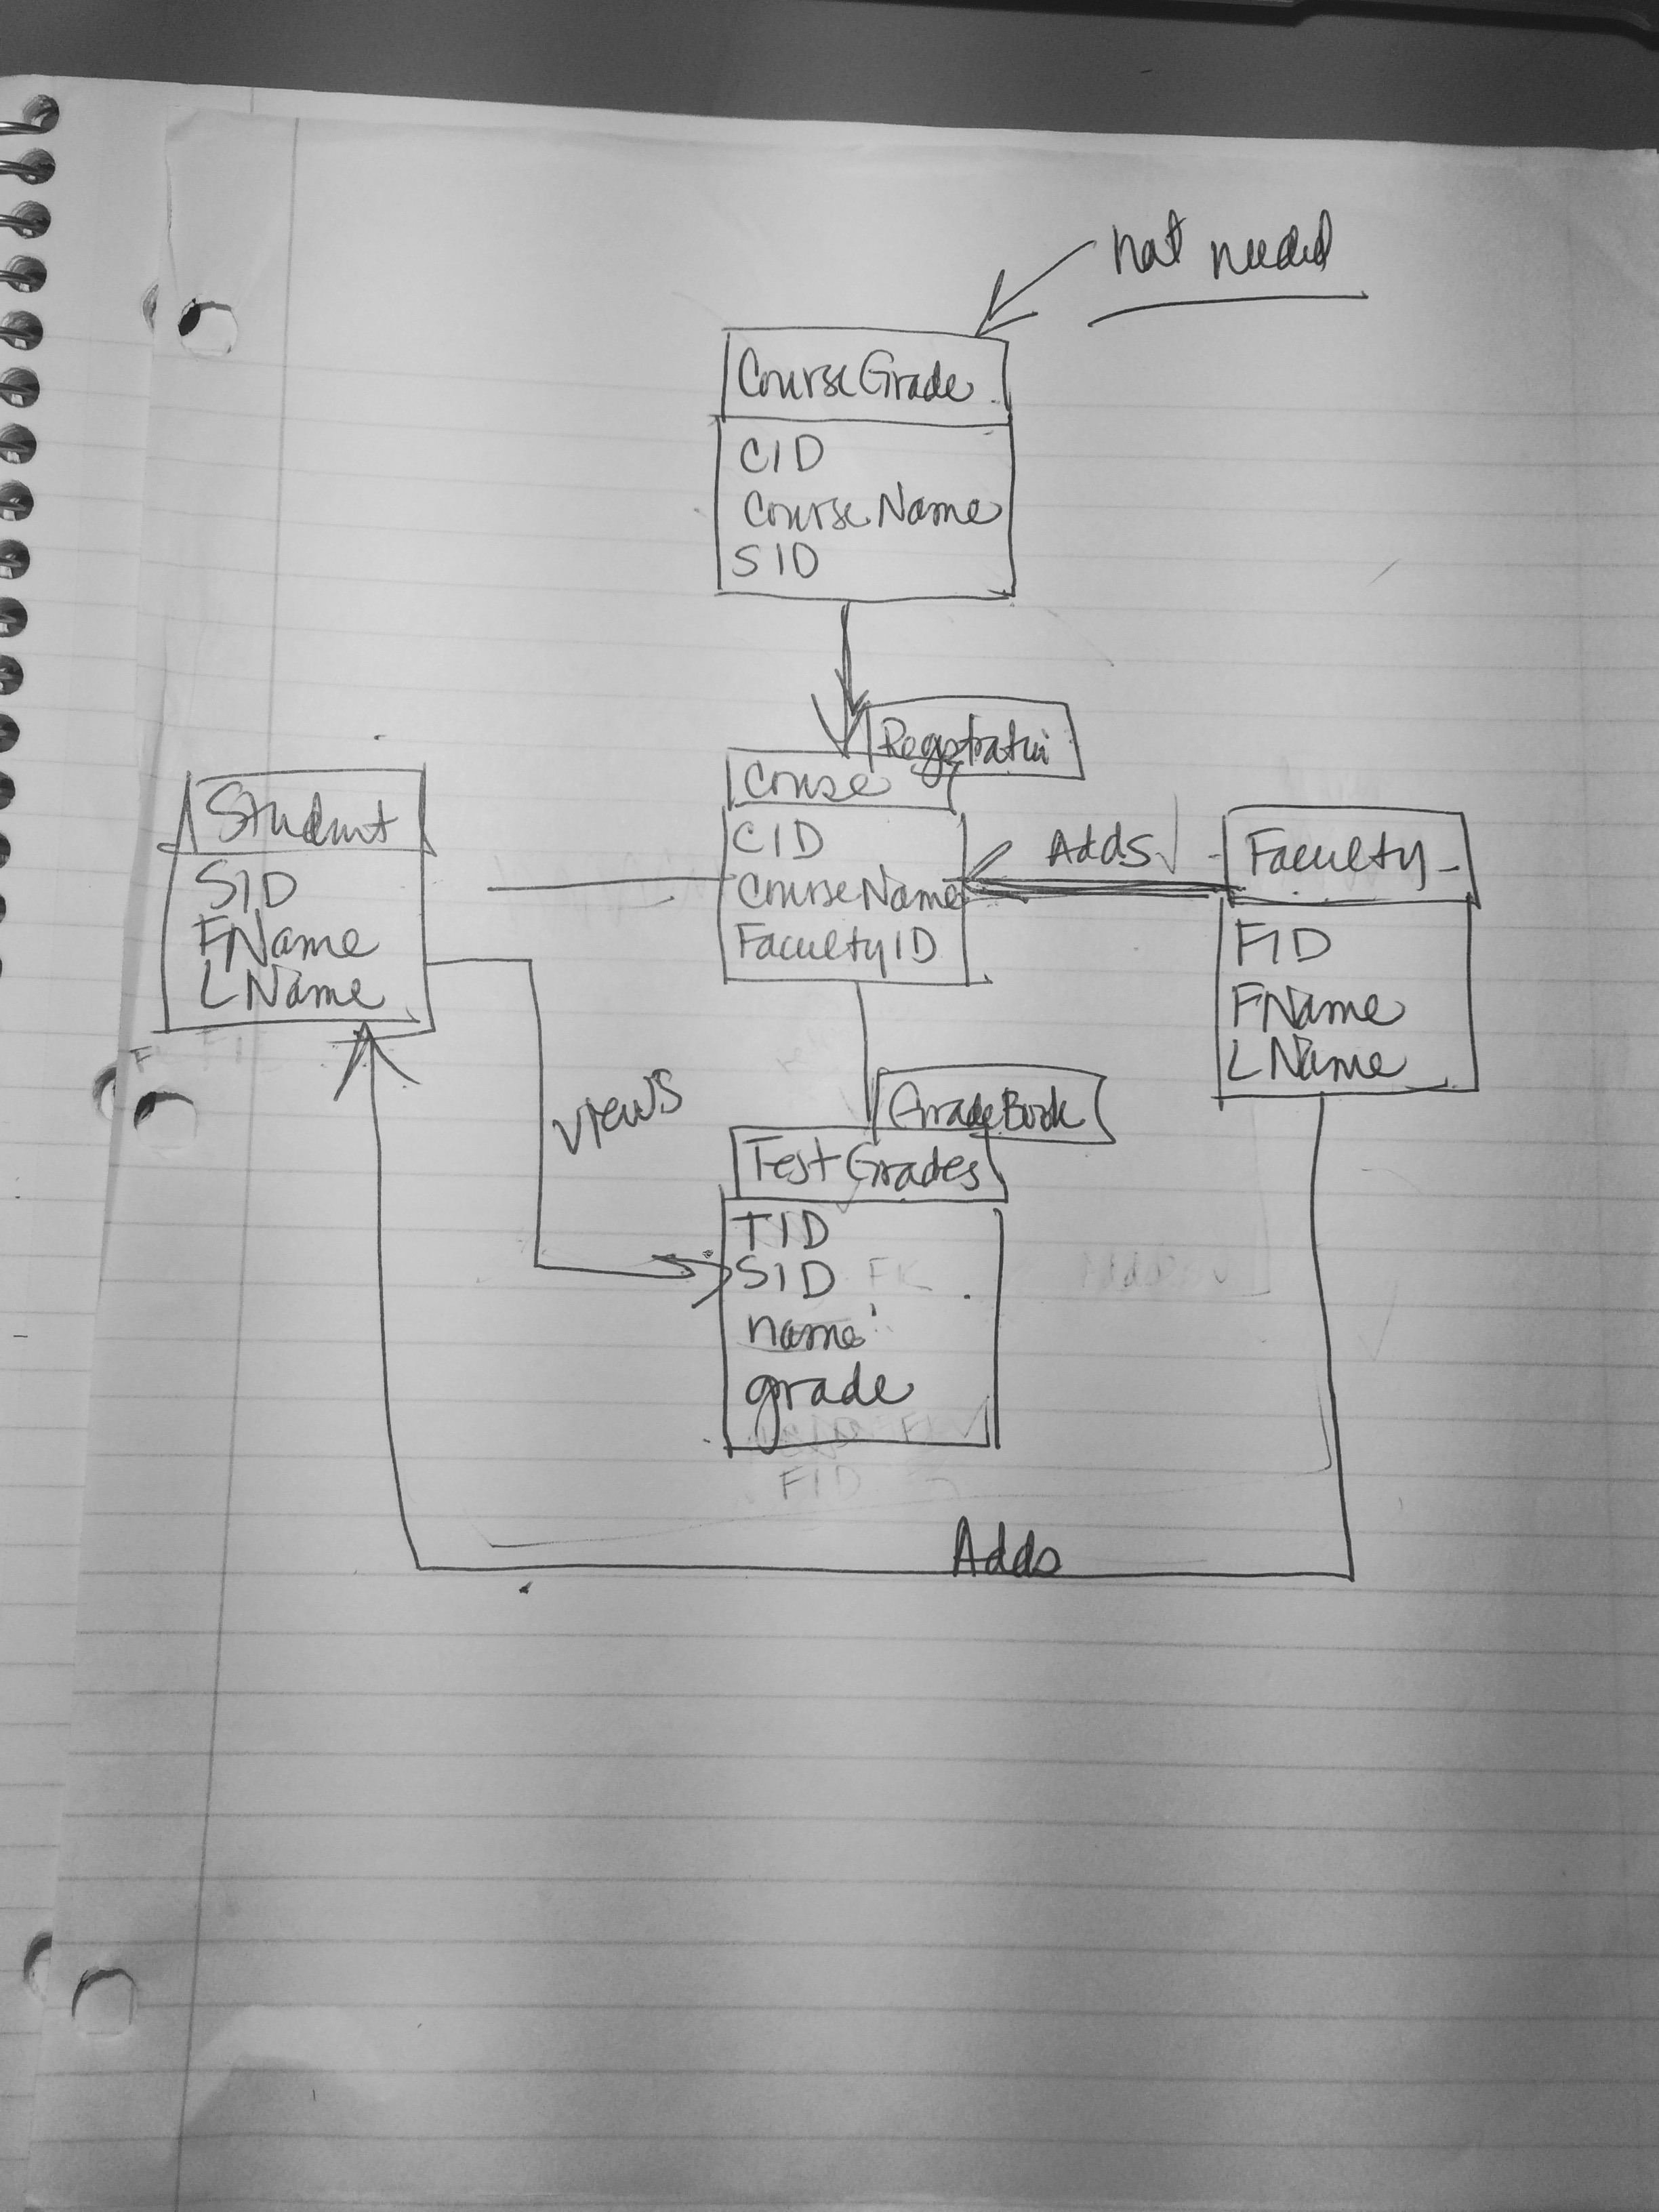 not needed
CourseGrade
CID
CourseName
SID
Registration
Course
CID
CourseName
FacultyID
Student
SID
FName
LName
Adds
Faculty
FID
FName
LName
views
GradeBook
TestGrades
TID
SID FK
name
grade
FID
Adds